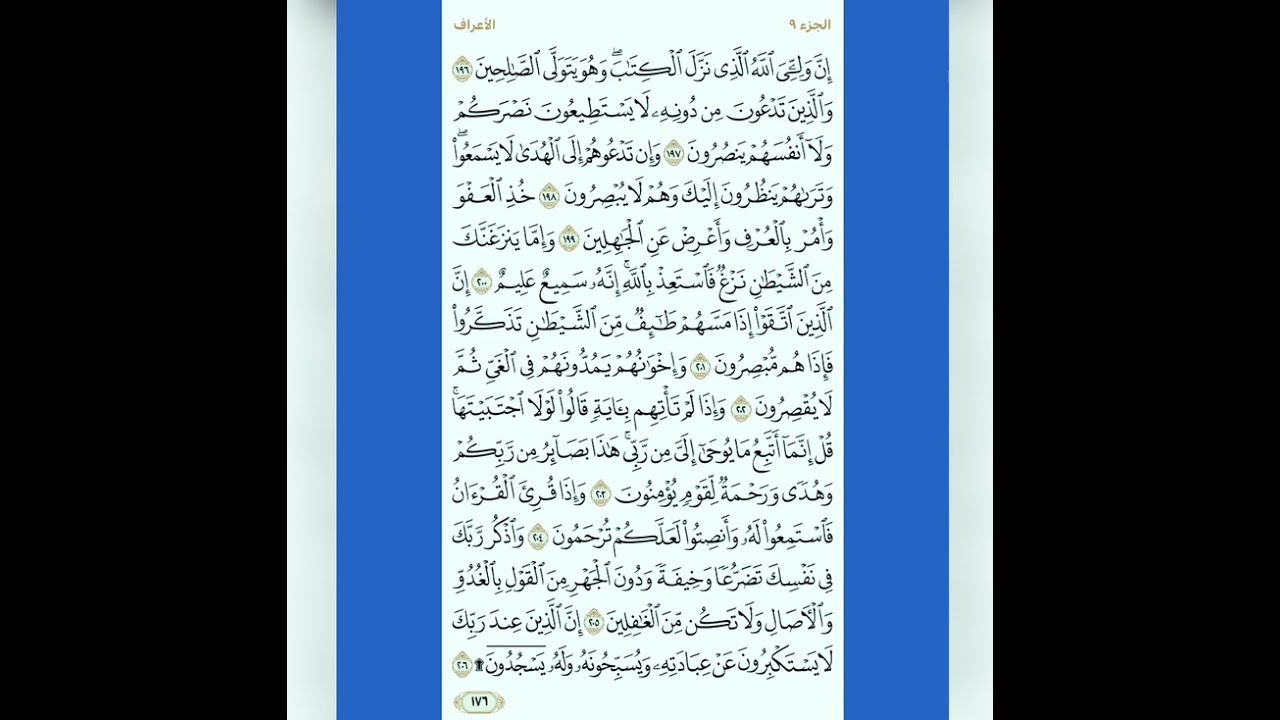 الجزء ٩ الأعراف
إِنَّ وَلِـِّۧيَ ٱللَّهُ ٱلَّذِى نَزَّلَ ٱلْكِتَـٰبَ ۖ وَهُوَ يَتَوَلَّى ٱلصَّـٰلِحِينَ ١٩٦
وَٱلَّذِينَ تَدْعُونَ مِن دُونِهِۦ لَا يَسْتَطِيعُونَ نَصْرَكُمْ
وَلَآ أَنفُسَهُمْ يَنصُرُونَ ١٩٧ وَإِن تَدْعُوهُمْ إِلَى ٱلْهُدَىٰ لَا يَسْمَعُوا۟ ۖ
وَتَرَىٰهُمْ يَنظُرُونَ إِلَيْكَ وَهُمْ لَا يُبْصِرُونَ ١٩٨ خُذِ ٱلْعَفْوَ
وَأْمُرْ بِٱلْعُرْفِ وَأَعْرِضْ عَنِ ٱلْجَـٰهِلِينَ ١٩٩ وَإِمَّا يَنزَغَنَّكَ
مِنَ ٱلشَّيْطَـٰنِ نَزْغٌ فَٱسْتَعِذْ بِٱللَّهِ ۚ إِنَّهُۥ سَمِيعٌ عَلِيمٌ ٢٠٠ إِنَّ
ٱلَّذِينَ ٱتَّقَوْا۟ إِذَا مَسَّهُمْ طَـٰٓئِفٌ مِّنَ ٱلشَّيْطَـٰنِ تَذَكَّرُوا۟
فَإِذَا هُم مُّبْصِرُونَ ٢٠١ وَإِخْوَٰنُهُمْ يَمُدُّونَهُمْ فِى ٱلْغَىِّ ثُمَّ
لَا يُقْصِرُونَ ٢٠٢ وَإِذَا لَمْ تَأْتِهِم بِـَٔايَةٍ قَالُوا۟ لَوْلَا ٱجْتَبَيْتَهَا ۚ
قُلْ إِنَّمَآ أَتَّبِعُ مَا يُوحَىٰٓ إِلَىَّ مِن رَّبِّى ۚ هَـٰذَا بَصَآئِرُ مِن رَّبِّكُمْ
وَهُدًى وَرَحْمَةٌ لِّقَوْمٍ يُؤْمِنُونَ ٢٠٣ وَإِذَا قُرِئَ ٱلْقُرْءَانُ
فَٱسْتَمِعُوا۟ لَهُۥ وَأَنصِتُوا۟ لَعَلَّكُمْ تُرْحَمُونَ ٢٠٤ وَٱذْكُر رَّبَّكَ
فِى نَفْسِكَ تَضَرُّعًا وَخِيفَةً وَدُونَ ٱلْجَهْرِ مِنَ ٱلْقَوْلِ بِٱلْغُدُوِّ
وَٱلْـَٔاصَالِ وَلَا تَكُن مِّنَ ٱلْغَـٰفِلِينَ ٢٠٥ إِنَّ ٱلَّذِينَ عِندَ رَبِّكَ
لَا يَسْتَكْبِرُونَ عَنْ عِبَادَتِهِۦ وَيُسَبِّحُونَهُۥ وَلَهُۥ يَسْجُدُونَ ۩ ٢٠٦
١٧٦